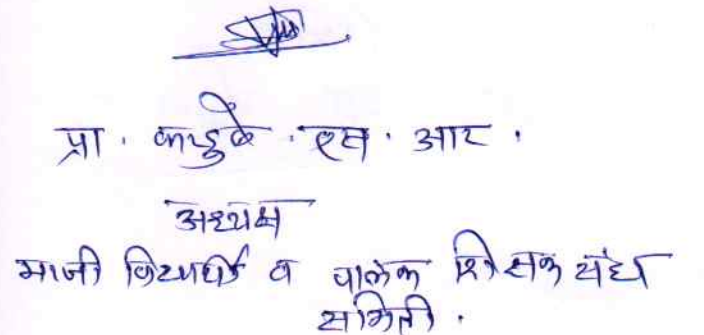 प्रा. कापडुबे. एस. आर.
अध्यक्ष
माजी विद्यार्थी व पालक शिक्षक संघ
समिती.